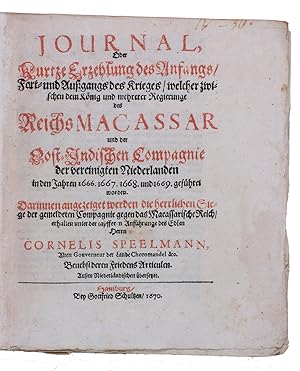 JOURNAL,
Oder
Kurtze Erzehlung des Anfangs/
Fort- und Außgangs des Krieges/ welcher zwi-
schen dem König und mehrerer Regierunge
des
Reichs MACASSAR
und der
Oost-Indischen Compagnie
der vereinigten Niederlanden
in den Jahren 1666. 1667. 1668. und 1669. geführet
worden.
Darinnen angezeiget werden die herrlichen Sie-
ge der gemeldeten Compagnie gegen das Macassarische Reich/
erhalten unter der tapffern Anführunge des Edlen
Herrn
CORNELIS SPEELMANN,
Alten Gouverneur der Landes Choromandel &c.
Benebst deren Friedens Articulen.
Außm Niederländischen übersetzet.
Hamburg/
Bey Gottfried Schultzen/ 1670.